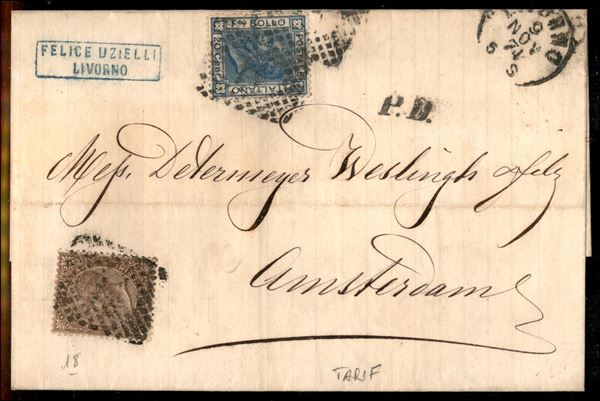 FELICE UZIELLI
LIVORNO
Fco BOLLO
20 CENT
POSTALE
ITALIANO
9
NOV
71
5 S
P.D.
Mess. Determeyer Weslingh & fils
Amsterdam
18
TARIF